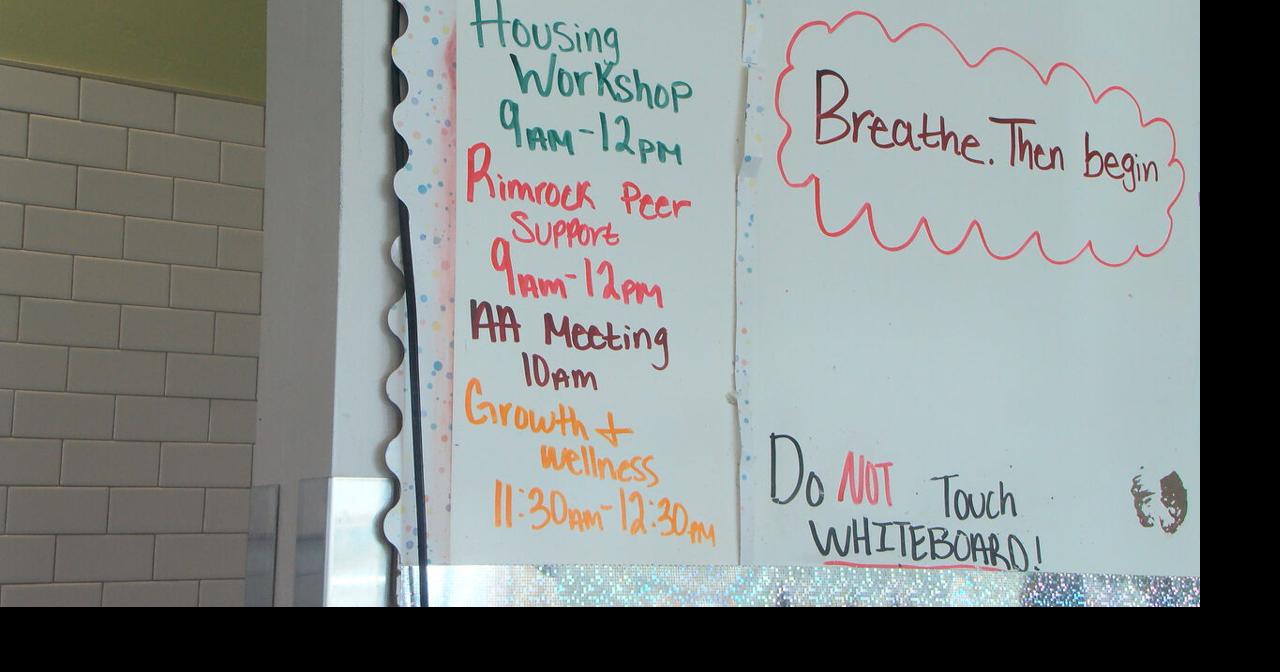 Housing
Workshop
9AM-12PM
Rimrock Peer
Support
9am-12pm
AA Meeting
10AM
Growth +
wellness
11:30AM-12:30PM
Breathe. Then begin
Do NOT Touch
WHITEBOARD!